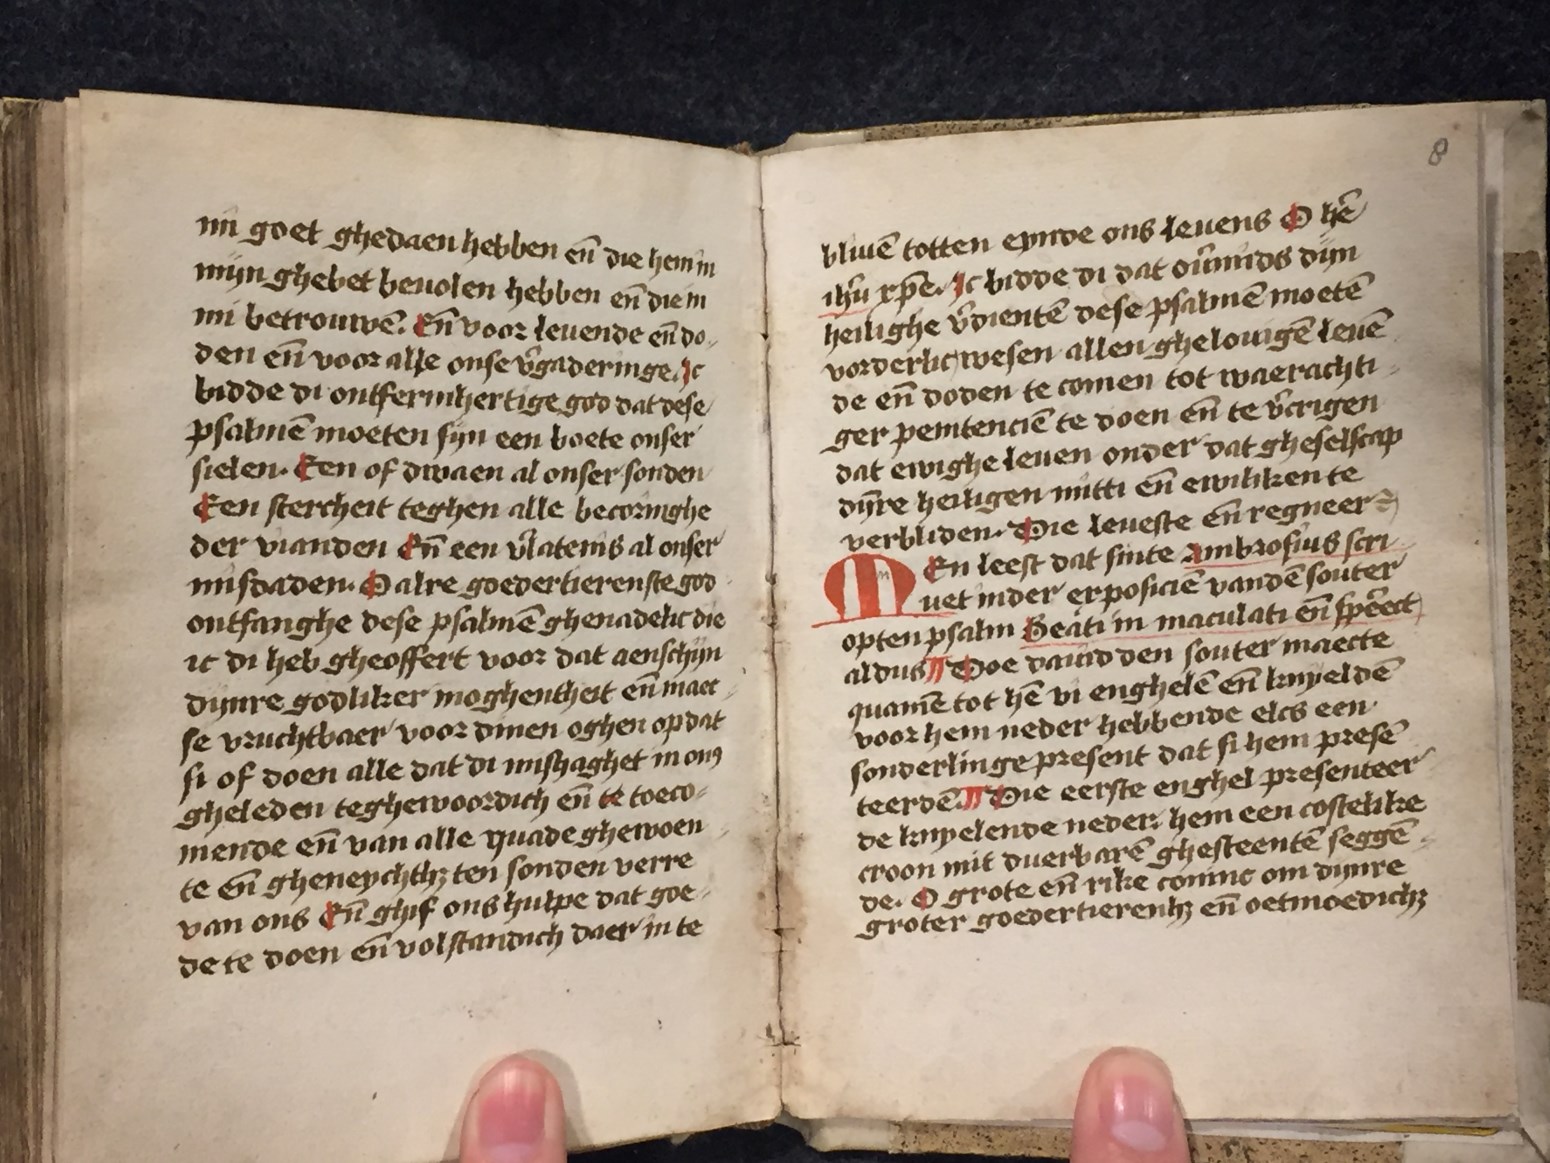 mi goet ghedaen hebben en̄ die hem in
mijn ghebet beuolen hebben en̄ die in
mi betrouwē. En̄ voor leuende en̄ do-
den en̄ voor alle onse v̄gaderinge. Ic
bidde di ontfermhertige god dat dese
psalmē moeten sijn een boete onser
sielen. Een of dwaen al onser sonden
Een stercheit teghen alle becoringhe
der vianden En̄ een v̄latenis al onser
misdaden. O alre goedertierenste god
ontfanghe dese psalmē ghenadelic die
ic di heb gheoffert voor dat aenschijn
dijnre godliker moghentheit en̄ maec
se vruchtbaer voor dinen oghen op dat
si of doen alle dat di mishaghet in ons
gheleden teghewoordich en̄ te toeco-
mende en̄ van alle quade ghewoen
te en̄ gheneychthꝫ ten sonden verre
van ons En̄ ghif ons hulpe dat goe-
de te doen en̄ volstandich daer in te
8
bliuē totten eynde ons leuens O hē
ihū xp̄e. Ic bidde di dat ou̅mids dijn
heilighe v̄dientē dese psalmē moetē
vorderlic wesen allen ghelouigē leuē
de en̄ doden te comen tot waerachti
ger penitenciē te doen en̄ te v̄crigen
dat ewighe leuen onder dat gheselscap
dijre heiligen mitti en̄ ewiliken te
verbliden. Die leueste en̄ regneer
MEn leest dat sinte Ambrosius scri
uet inder exposiciē vandē souter
opten psalm Beati in maculati en̄ sprēct
aldus ¶ Doe dauid den souter maecte
quamē tot hē vi enghelē en̄ knyeldē
voor hem neder hebbende elcs een
sonderlinge present dat si hem presē
teerdē. ¶ Die eerste enghel presenteer
de knyelende neder hem een costelike
croon mit duerbarē ghesteentē seggē
de. O grote en̄ rike coninc om dijnre
groter goedertierenhꝫ en̄ oetmoedichꝫ